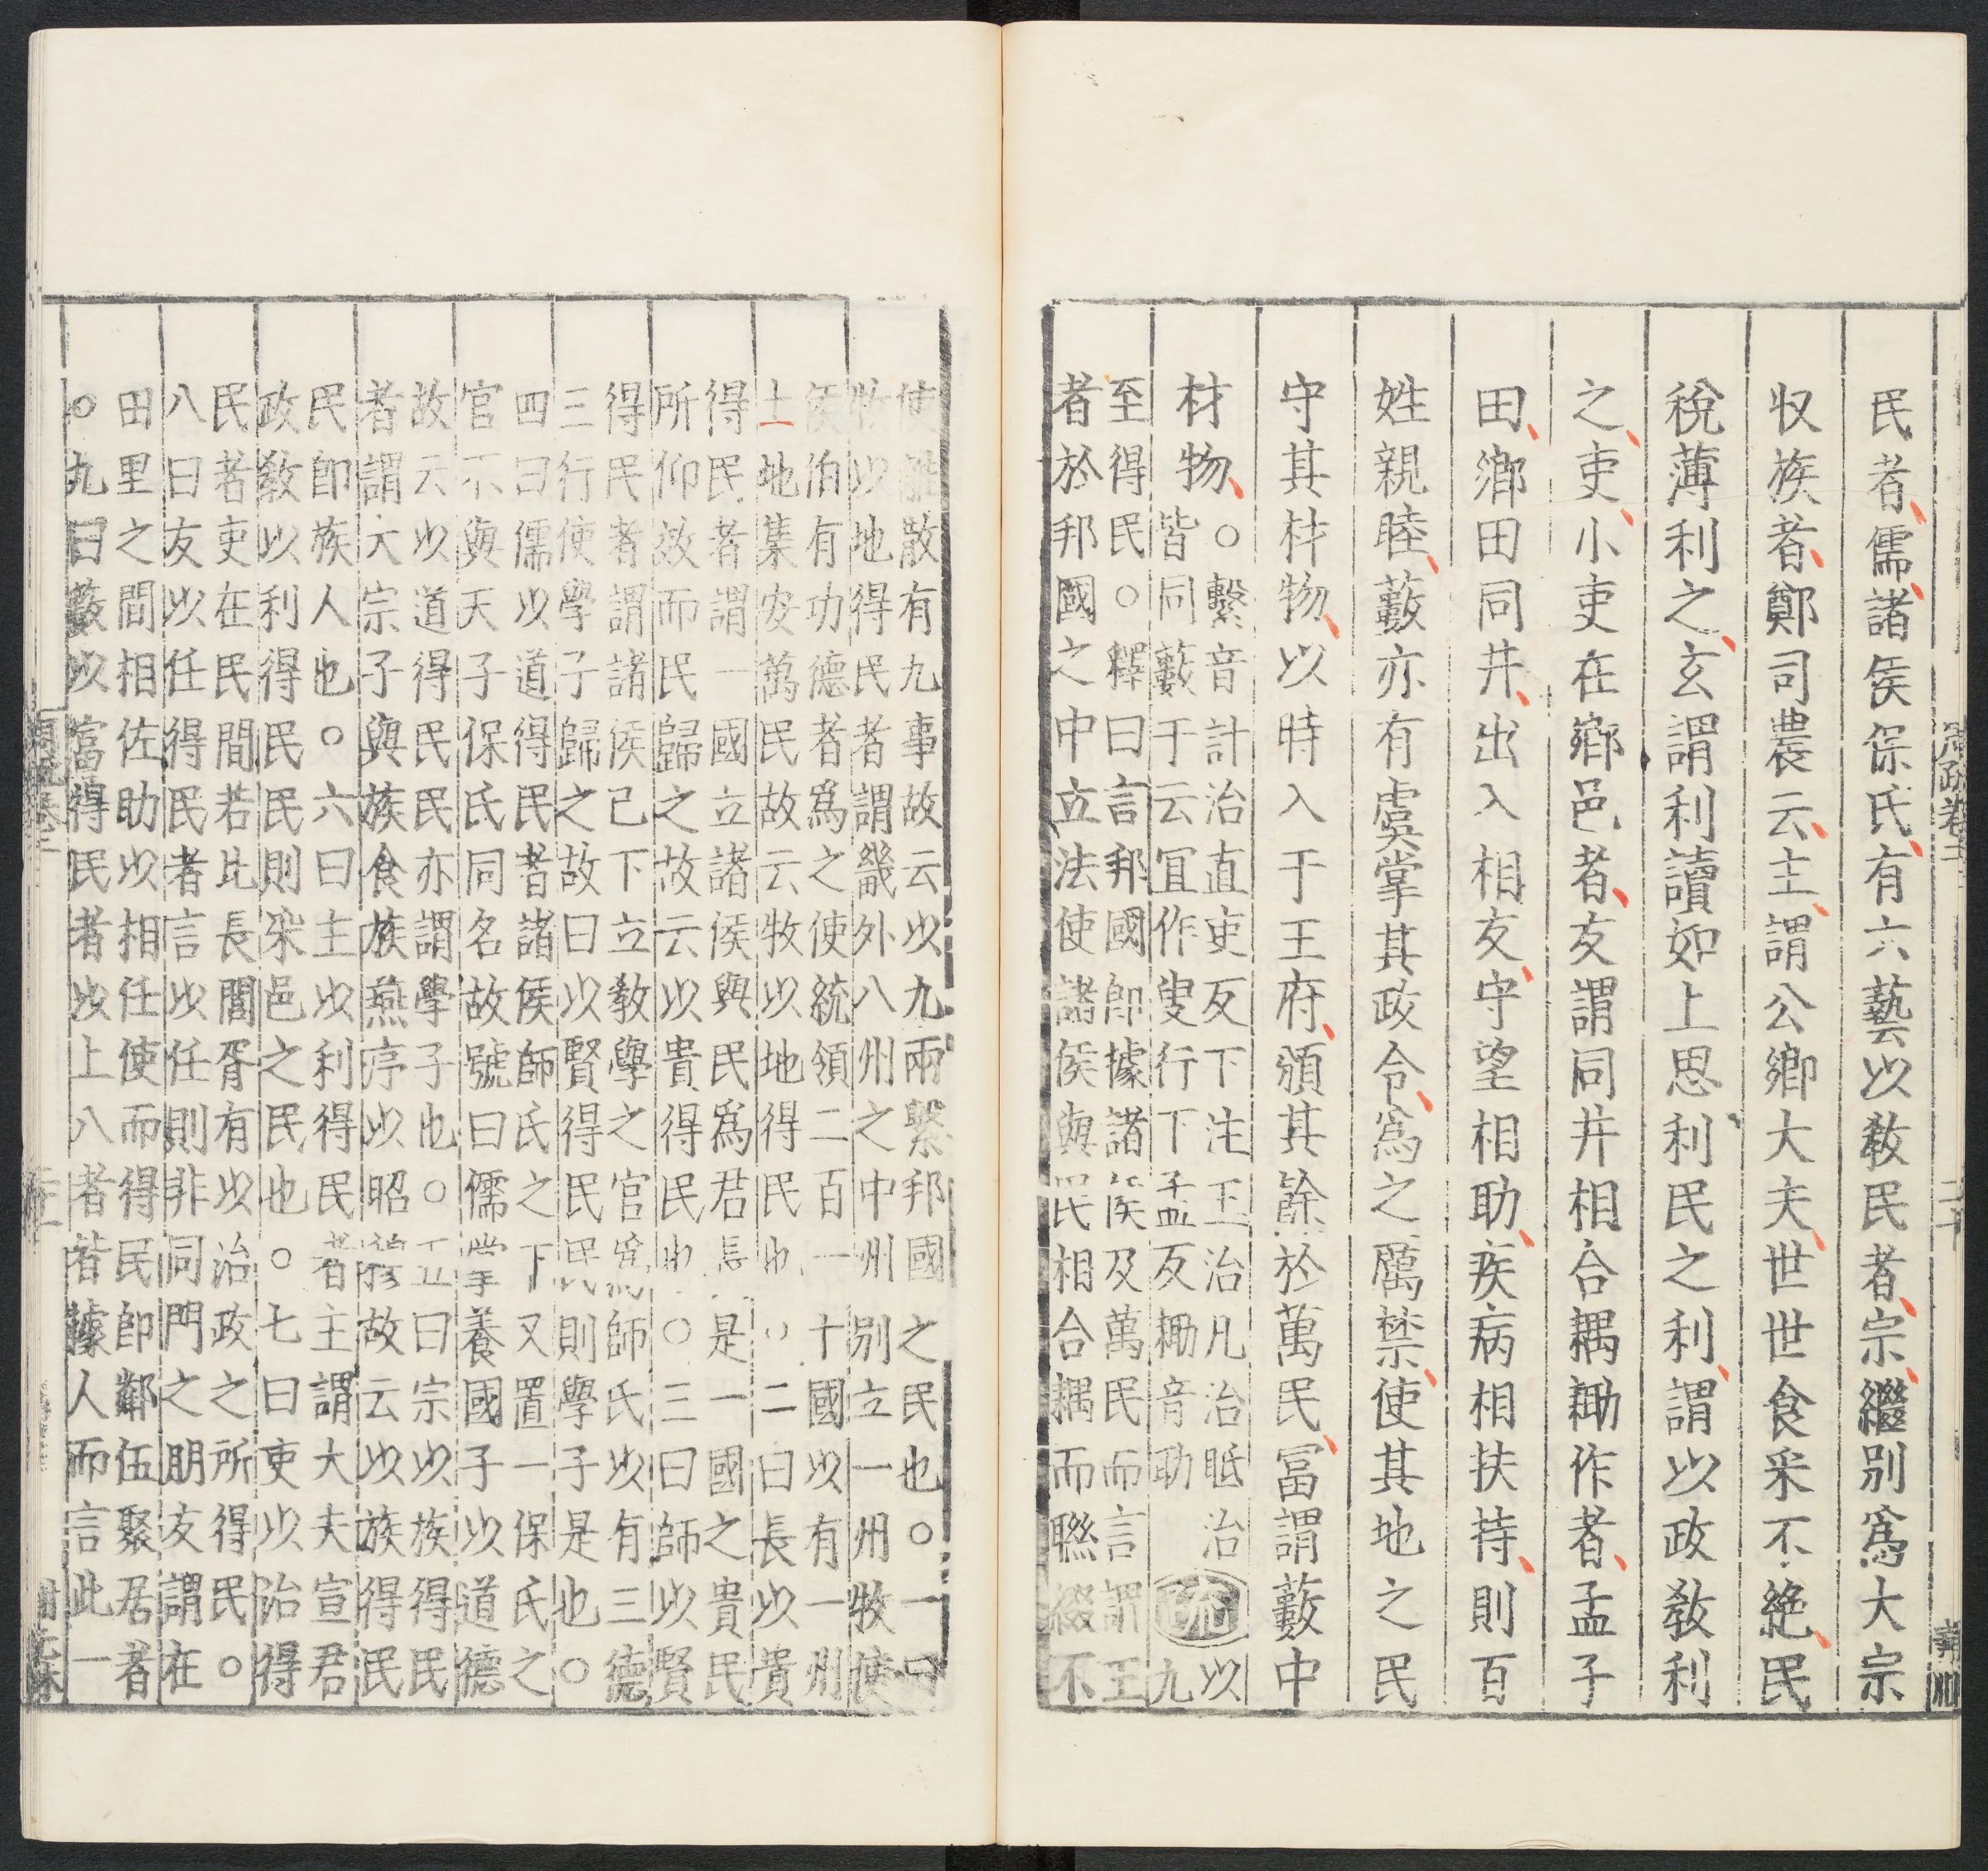 民者儒諸侯保氏有六藝以敎民者宗繼別爲大宗
収族者鄭司農云主謂公卿大夫世世食采不絶民
稅薄利之玄謂利讀如上思利民之利謂以政敎利
之吏小吏在鄉邑者友謂同井相合耦耡作者孟子
田鄉田同井出入相友守望相助疾病相扶持則百
姓親睦藪亦有虞掌其政令爲之厲禁使其地之民
守其材物以時入于王府頒其餘於萬民富謂藪中
材物○繫音計治直吏反下注王治凡治眡治疏以
皆同藪于云冝作叟行下孟反耡音助九
至得民○釋曰言邦國即據諸侯及萬民而言謂王
者於邦國之中立法使諸侯與民相合耦而聮綴不
使離散有九事故云以九兩繫邦國之民也○一曰
牧以地得民者謂畿外八州之中州別立一州牧使
侯伯有功德者爲之使統領二百一十國以有一州
土地集安萬民故云牧以地得民也○二曰長以貴
得民者謂一國立諸侯與民爲君長是一國之貴民
所仰效而民歸之故云以貴得民也○三曰師以賢
得民者謂諸侯已下立敎學之官爲師氏以有三德
三行使學子歸之故曰以賢得民民則學子是也○
四曰儒以道得民者諸侯師氏之下又置一保氏之
官不與天子保氏同名故號曰儒掌養國子以道德
故云以道得民民亦謂學子也○五曰宗以族得民
者謂大宗子與族食族燕序以昭穆故云以族得民
民即族人也○六曰主以利得民者主謂大夫宣君
政敎以利得民民則采邑之民也○七曰吏以治得
民者吏在民間若比長閭胥有以治政之所得民○
八曰友以任得民者言以任則非同門之朋友謂在
田里之間相佐助以相任使而得民即鄰伍聚居者
○九曰藪以富得民者以上八者皆據人而言此一